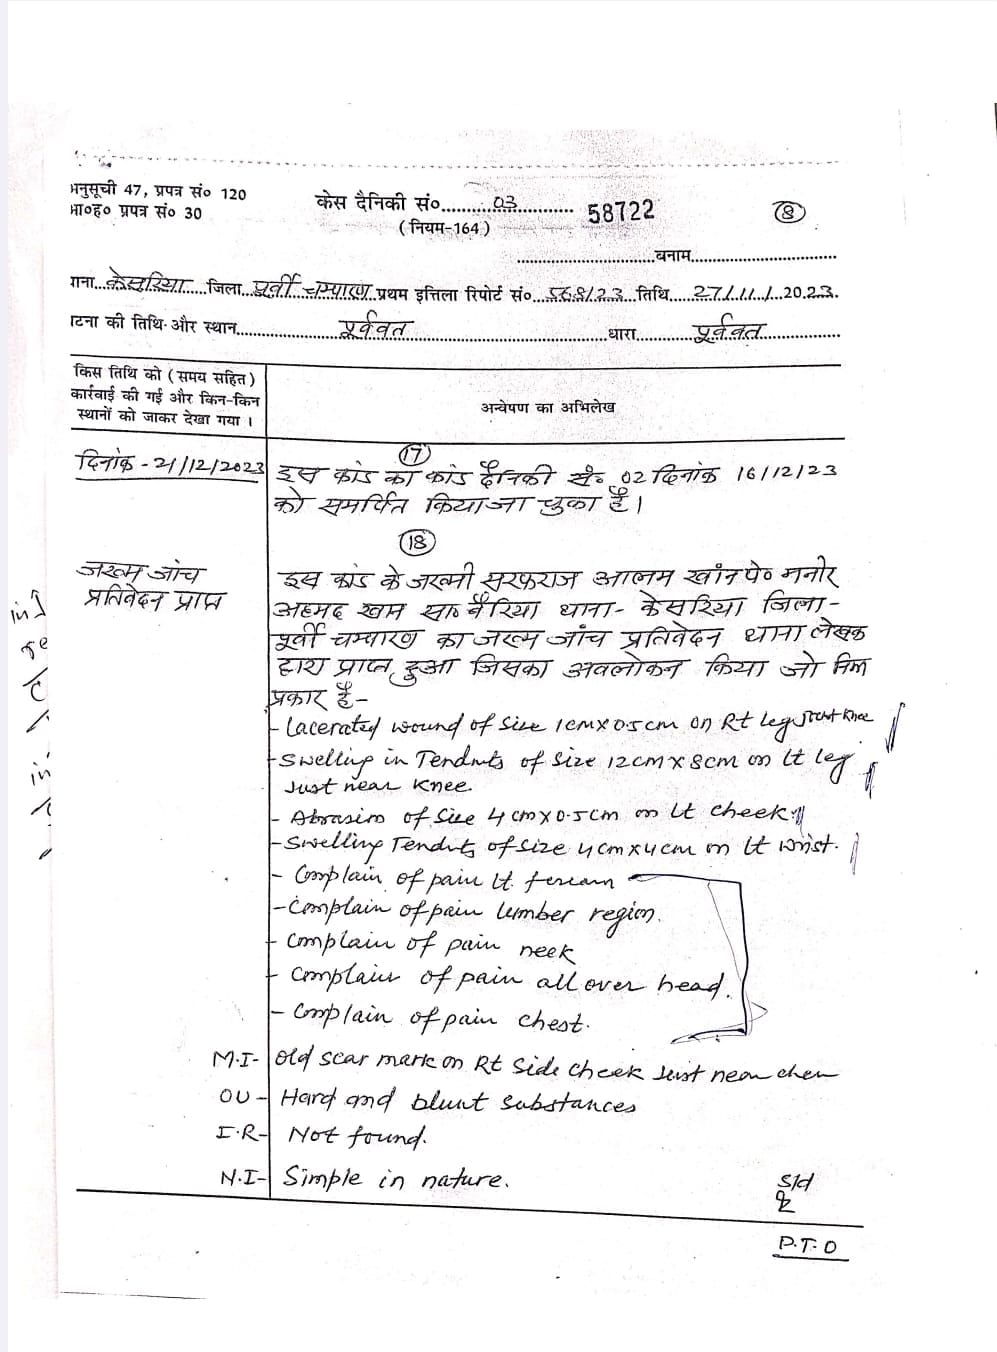 अनुसूची 47, प्रपत्र सं० 120
आ०ह० प्रपत्र सं० 30
केस दैनिकी सं०.........03............
58722
(8)
(नियम-164)
...........................बनाम.............................
थाना...केसरिया...जिला...पूर्वी चम्पारण प्रथम इत्तिला रिपोर्ट सं०...568/23...तिथि....27/11/...2023.
घटना की तिथि और स्थान...............पूर्ववत..............................धारा............पूर्ववत...............
किस तिथि को (समय सहित)
कार्रवाई की गई और किन-किन
स्थानों को जाकर देखा गया ।
अन्वेषण का अभिलेख
(17)
दिनांक - 21/12/2023
इस कांड का कांड दैनिकी सं० 02 दिनांक 16/12/23
को समर्पित किया जा चुका है।
(18)
जख्म जांच
प्रतिवेदन प्राप्त
इस कांड के जख्मी सरफराज आलम खाँन पे० मनीर
अहमद खान सा० बैरिया थाना- केसरिया जिला-
पूर्वी चम्पारण का जख्म जांच प्रतिवेदन थाना लेखक
द्वारा प्राप्त हुआ जिसका अवलोकन किया जो निम्न
प्रकार है-
- Lacerated wound of size 1cmx0.5cm on Rt leg Knee
- Swelling in of size 12cm x 8cm on Lt leg
Just near Knee.
- Abrasion of size 4cmx0.5cm on Lt cheek
- Swelling of size 4cmx4cm on Lt wrist.
- Complain of pain Lt.
- Complain of pain lumber region.
- Complain of pain neek
- Complain of pain all over head.
- Complain of pain chest.
M.I- Old scar mark on Rt side cheek Just near
OU- Hard and blunt substances
I.R- Not found.
N.I- Simple in nature.
S/d
P.T.O